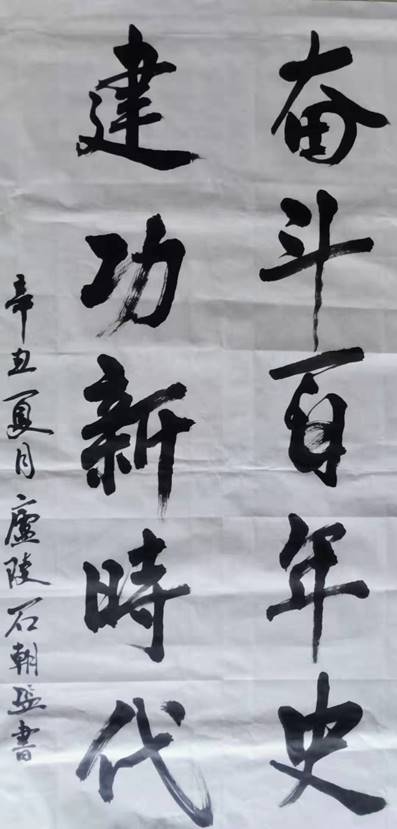 奋斗百年史
建功新時代
辛丑夏月廬陵石朝盛書